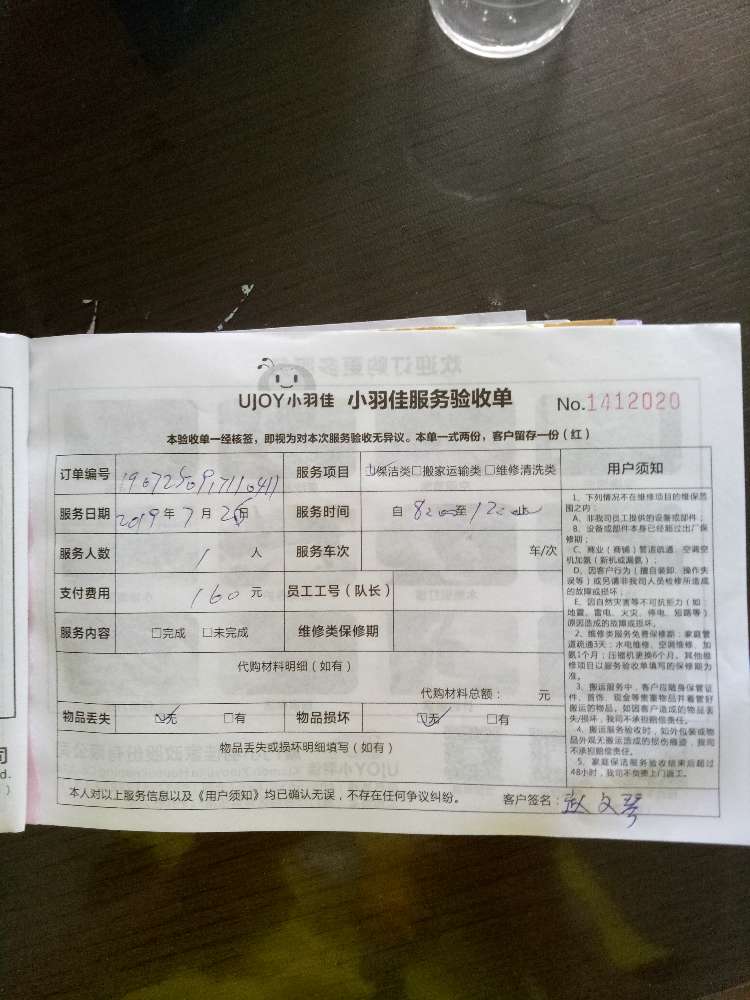 UJOY小羽佳 小羽佳服务验收单 No.1412020
本验收单一经核签，即视为对本次服务验收无异议。本单一式两份，客户留存一份（红）
订单编号 服务项目 保洁类□搬家运输类□维修清洗类
服务日期 2019年7月25日 服务时间 自 8:00至12:00止
服务人数 1 人 服务车次 车/次
支付费用 160 元 员工工号（队长）
服务内容 □完成 □未完成 维修类保修期
代购材料明细（如有）
代购材料总额： 元
物品丢失 ☑无 □有 物品损坏 ☑无 □有
物品丢失或损坏明细填写（如有）
本人对以上服务信息以及《用户须知》均已确认无误，不存在任何争议纠纷。 客户签名：赵文琴
用户须知
1、下列情况不在维修项目的维保范
围之内：
A、非我司员工提供的设备或部件；
B、设备或部件本身已经超过出厂保
修期；
C、商业（商铺）管道疏通、空调空
机加氨（新机或漏氨）；
D、因客户行为（擅自装卸、操作失
误等）或另请非我司人员检修所造成
的故障或损坏；
E、因自然灾害等不可抗能力（如：
地震、雷电、火灾、停电、短路等）
原因造成的故障或损坏。
2、维修类服务免费保修期：家庭管
道疏通3天；水电维修、空调维修、加
氨1个月；压缩机更换6个月。其他维
修项目以服务验收单填写的保修期为
准。
3、搬运服务中，客户应随身保管证
件、首饰、现金等贵重物品并看管好
搬运的物品。如因客户造成的物品丢
失/损坏，我司不承担赔偿责任。
4、搬运服务验收时，如外包装或物
品外观无搬运造成的损伤痕迹，我司
不承担赔偿责任。
5、家庭保洁服务验收结束后超过
48小时，我司不负责上门返工。
司
d.
)